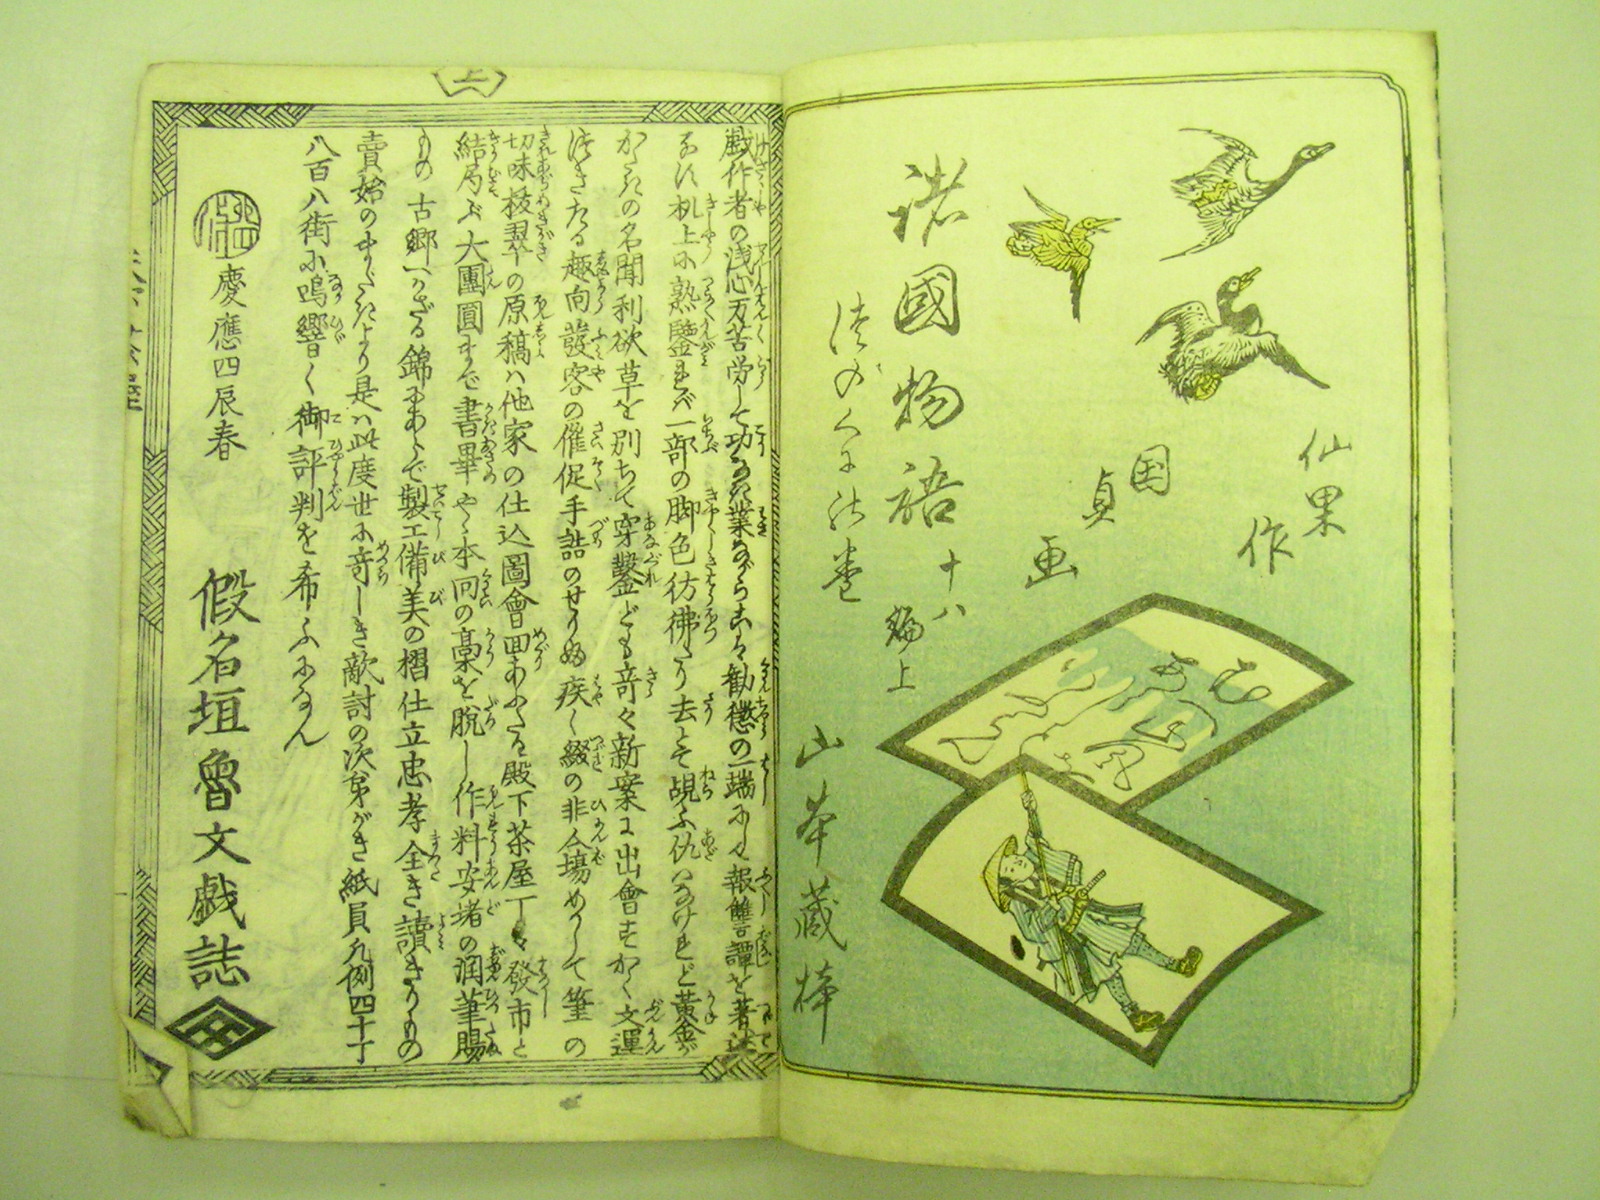 仙果作
国貞画
諸國物語十八編上
津のくに の巻
山本藏梓
上
戯作者の浅心万苦労して功なき業ながらこも勧懲の一端にして報讐譚を著述
なに机上に熟鑒れバ一部の脚色彷彿たり去とて覘ふ仇ハなけれど黄金が
かたきの名聞利欲草を別ちて穿鑿ども竒々新案に出會さずかく文運
つきたる趣向發客の催促手詰のせりふ疾く綴の非人塲めかして筆の
切味抜翠の原稿ハ他家の仕込圖會回あふたる殿下茶屋丁々發市と
結局ぶ大團圓まで書畢やく本回の稾を脱し作料安堵の潤筆賜
もの古郷へかざる錦にあらで製工備美の摺仕立忠孝全き讀きりもの
賣始のまがたきより是ハ此度世に竒しき敵討の次第がき紙員九例四十丁
八百八街に鳴響く御評判を希ふになん
慶應四辰春
假名垣魯文戯誌